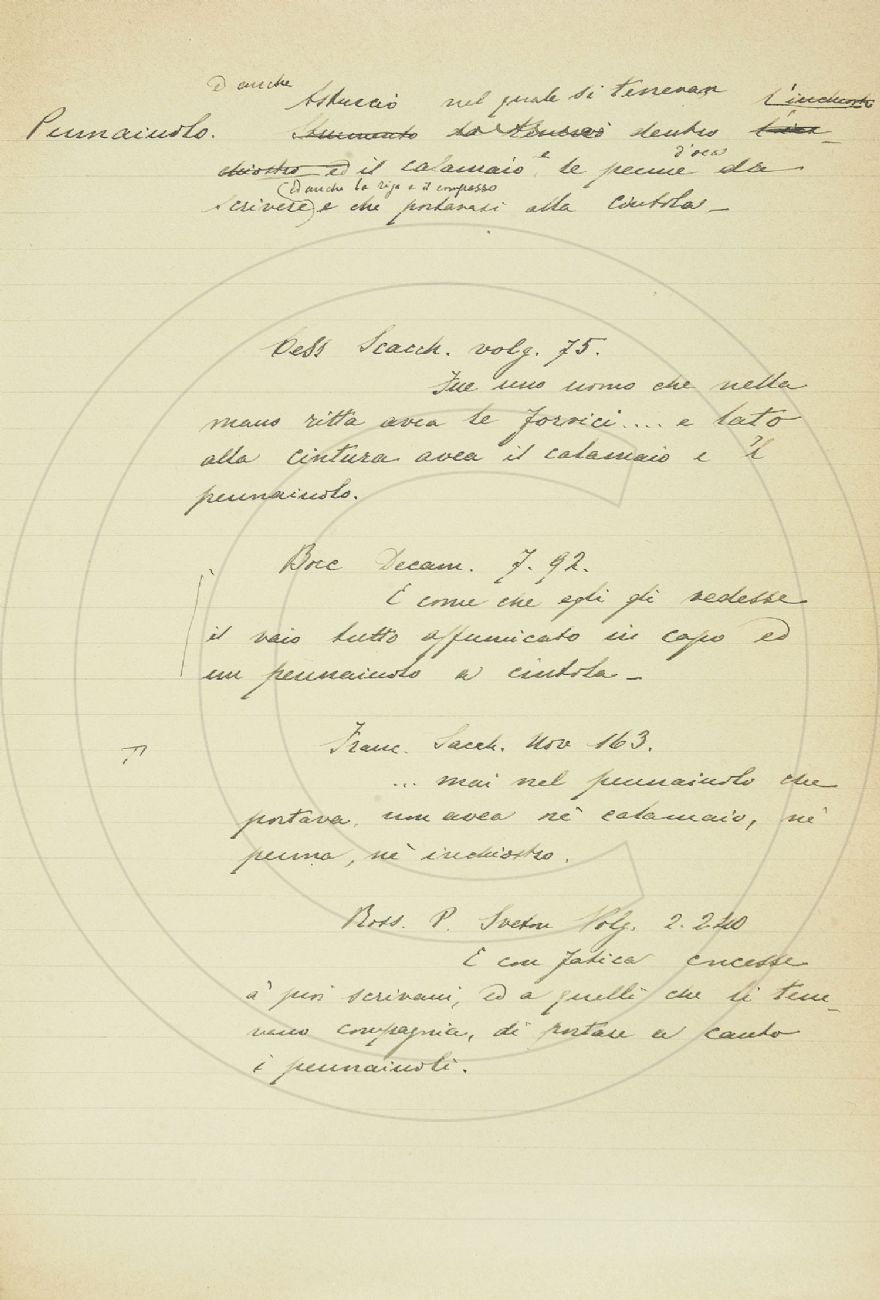 ed anche
Astuccio nel quale si tenevan l'inchiostro
Pennaiuolo. Strumento da tenervi dentro l'in-
chiostro ed il calamaio e le penne d'oca da
(ed anche la riga e il compasso
scrivere) e che portavasi alla cintola –
Cess Scacch. volg. 75.
Fue uno uomo che nella
mano ritta avea le forvici.... e lato
alla cintura avea il calamaio e 'l
pennaiuolo.
Bocc Decam. 7. 92.
E come che egli gli vedesse
il vaio tutto affumicato in capo ed
un pennaiuolo a cintola –
Franc. Sacch. Nov 163.
... mai nel pennaiuolo che
portava, non avea nè calamaio, nè
penna, nè inchiostro.
Ross. P. Sveton Volg. 2. 240
E con fatica concesse
a' poi scrivani, ed a quelli che li tene-
vano compagnia, di portare a canto
i pennaiuoli.